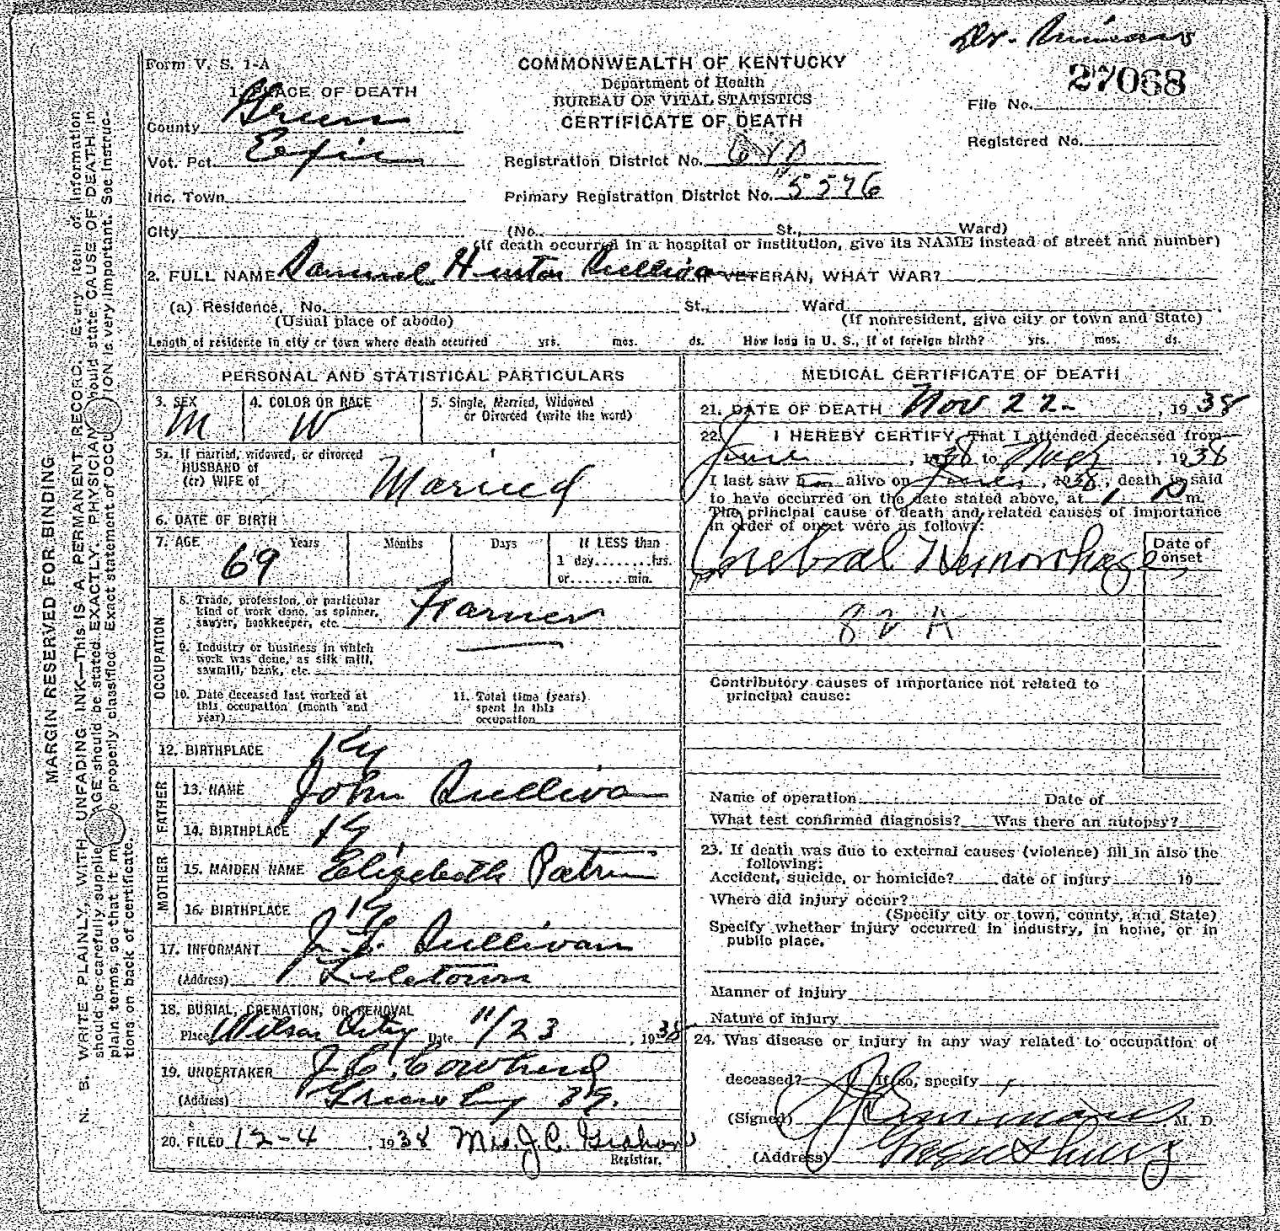 Dr. Simmons
Form V. S. 1-A
COMMONWEALTH OF KENTUCKY
Department of Health
BUREAU OF VITAL STATISTICS
CERTIFICATE OF DEATH
27068
File No.
Registered No.
1. PLACE OF DEATH
County Green
Vot. Pct.
Inc. Town
City
Registration District No.
Primary Registration District No. 5576
(No. St., Ward)
(If death occurred in a hospital or institution, give its NAME instead of street and number)
2. FULL NAME Samuel Hinton Sullivan IF VETERAN, WHAT WAR?
(a) Residence, No. St., Ward
(Usual place of abode) (If nonresident, give city or town and State)
Length of residence in city or town where death occurred yrs. mos. ds. How long in U. S., if of foreign birth? yrs. mos. ds.
PERSONAL AND STATISTICAL PARTICULARS
3. SEX M
4. COLOR OR RACE W
5. Single, Married, Widowed
or Divorced (write the word)
5a. If married, widowed, or divorced
HUSBAND of
(or) WIFE of Married
6. DATE OF BIRTH
7. AGE 69 Years Months Days If LESS than
1 day........hrs.
or........min.
OCCUPATION
8. Trade, profession, or particular
kind of work done, as spinner,
sawyer, bookkeeper, etc. Farmer
9. Industry or business in which
work was done, as silk mill,
sawmill, bank, etc.
10. Date deceased last worked at
this occupation (month and
year)
11. Total time (years)
spent in this
occupation
12. BIRTHPLACE Ky
FATHER
13. NAME John Sullivan
14. BIRTHPLACE Ky
MOTHER
15. MAIDEN NAME Elizabeth
16. BIRTHPLACE Ky
17. INFORMANT Sullivan
(Address) Liletown
18. BURIAL, CREMATION, OR REMOVAL
Place Wilson Cty Date 11/23, 1938
19. UNDERTAKER J.C. Cowherd
(Address) Greensburg Ky.
20. FILED 12-4, 1938 Mrs. J.C. Graham
Registrar.
MEDICAL CERTIFICATE OF DEATH
21. DATE OF DEATH Nov 22-, 1938
22. I HEREBY CERTIFY, That I attended deceased from
June, 1938 to Nov, 1938
I last saw him alive on, 1938, death is said
to have occurred on the date stated above, at 1 P m.
The principal cause of death and related causes of importance
in order of onset were as follows:
Date of
onset
Cerebral Hemorrhage
82 A
Contributory causes of importance not related to
principal cause:
Name of operation Date of
What test confirmed diagnosis? Was there an autopsy?
23. If death was due to external causes (violence) fill in also the
following:
Accident, suicide, or homicide? date of injury 19
Where did injury occur?
(Specify city or town, county, and State)
Specify whether injury occurred in industry, in home, or in
public place.
Manner of Injury
Nature of injury
24. Was disease or injury in any way related to occupation of
deceased? If so, specify
(Signed) Simmons M. D.
(Address) Greensburg
MARGIN RESERVED FOR BINDING
N. B. WRITE PLAINLY, WITH UNFADING INK—This IS A PERMANENT RECORD. Every item of information
should be carefully supplied. AGE should be stated EXACTLY. PHYSICIAN should state CAUSE OF DEATH in
plain terms, so that it may be properly classified. Exact statement of OCCUPATION is very important. See instruc-
tions on back of certificate.